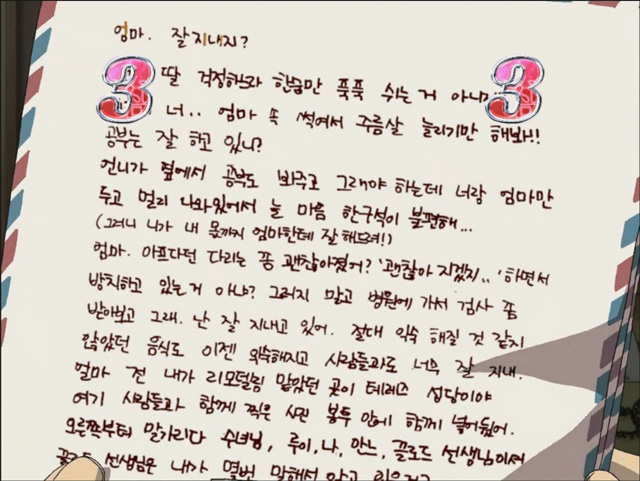 엄마. 잘 지내지?
3 딸 걱정하느라 한숨만 푹푹 쉬는 거 아냐 3
너.. 엄마 속 썩여서 주름살 늘리기만 해봐!!
공부는 잘 하고 있니?
언니가 옆에서 공부도 봐주고 그래야 하는데 너랑 엄마만
두고 멀리 나와있어서 늘 마음 한구석이 불편해...
(그러니 니가 내 몫까지 엄마한테 잘 해드려!)
엄마. 아프다던 다리는 좀 괜찮아졌어? '괜찮아 지겠지..' 하면서
방치하고 있는거 아냐? 그러지 말고 병원에 가서 검사 좀
받아보고 그래. 난 잘 지내고 있어. 절대 익숙 해질 것 같지
않았던 음식도 이젠 익숙해지고 사람들과도 너무 잘 지내.
얼마 전 내가 리모델링 맡았던 곳이 테레즈 성당이야
여기 사람들과 함께 찍은 사진 봉투 안에 함께 넣어뒀어.
오른쪽부터 말가리다 수녀님, 루이, 나, 안느, 끌로드 선생님이셔
끌로드 선생님은 내가 몇번 말해서 알고 있을거고